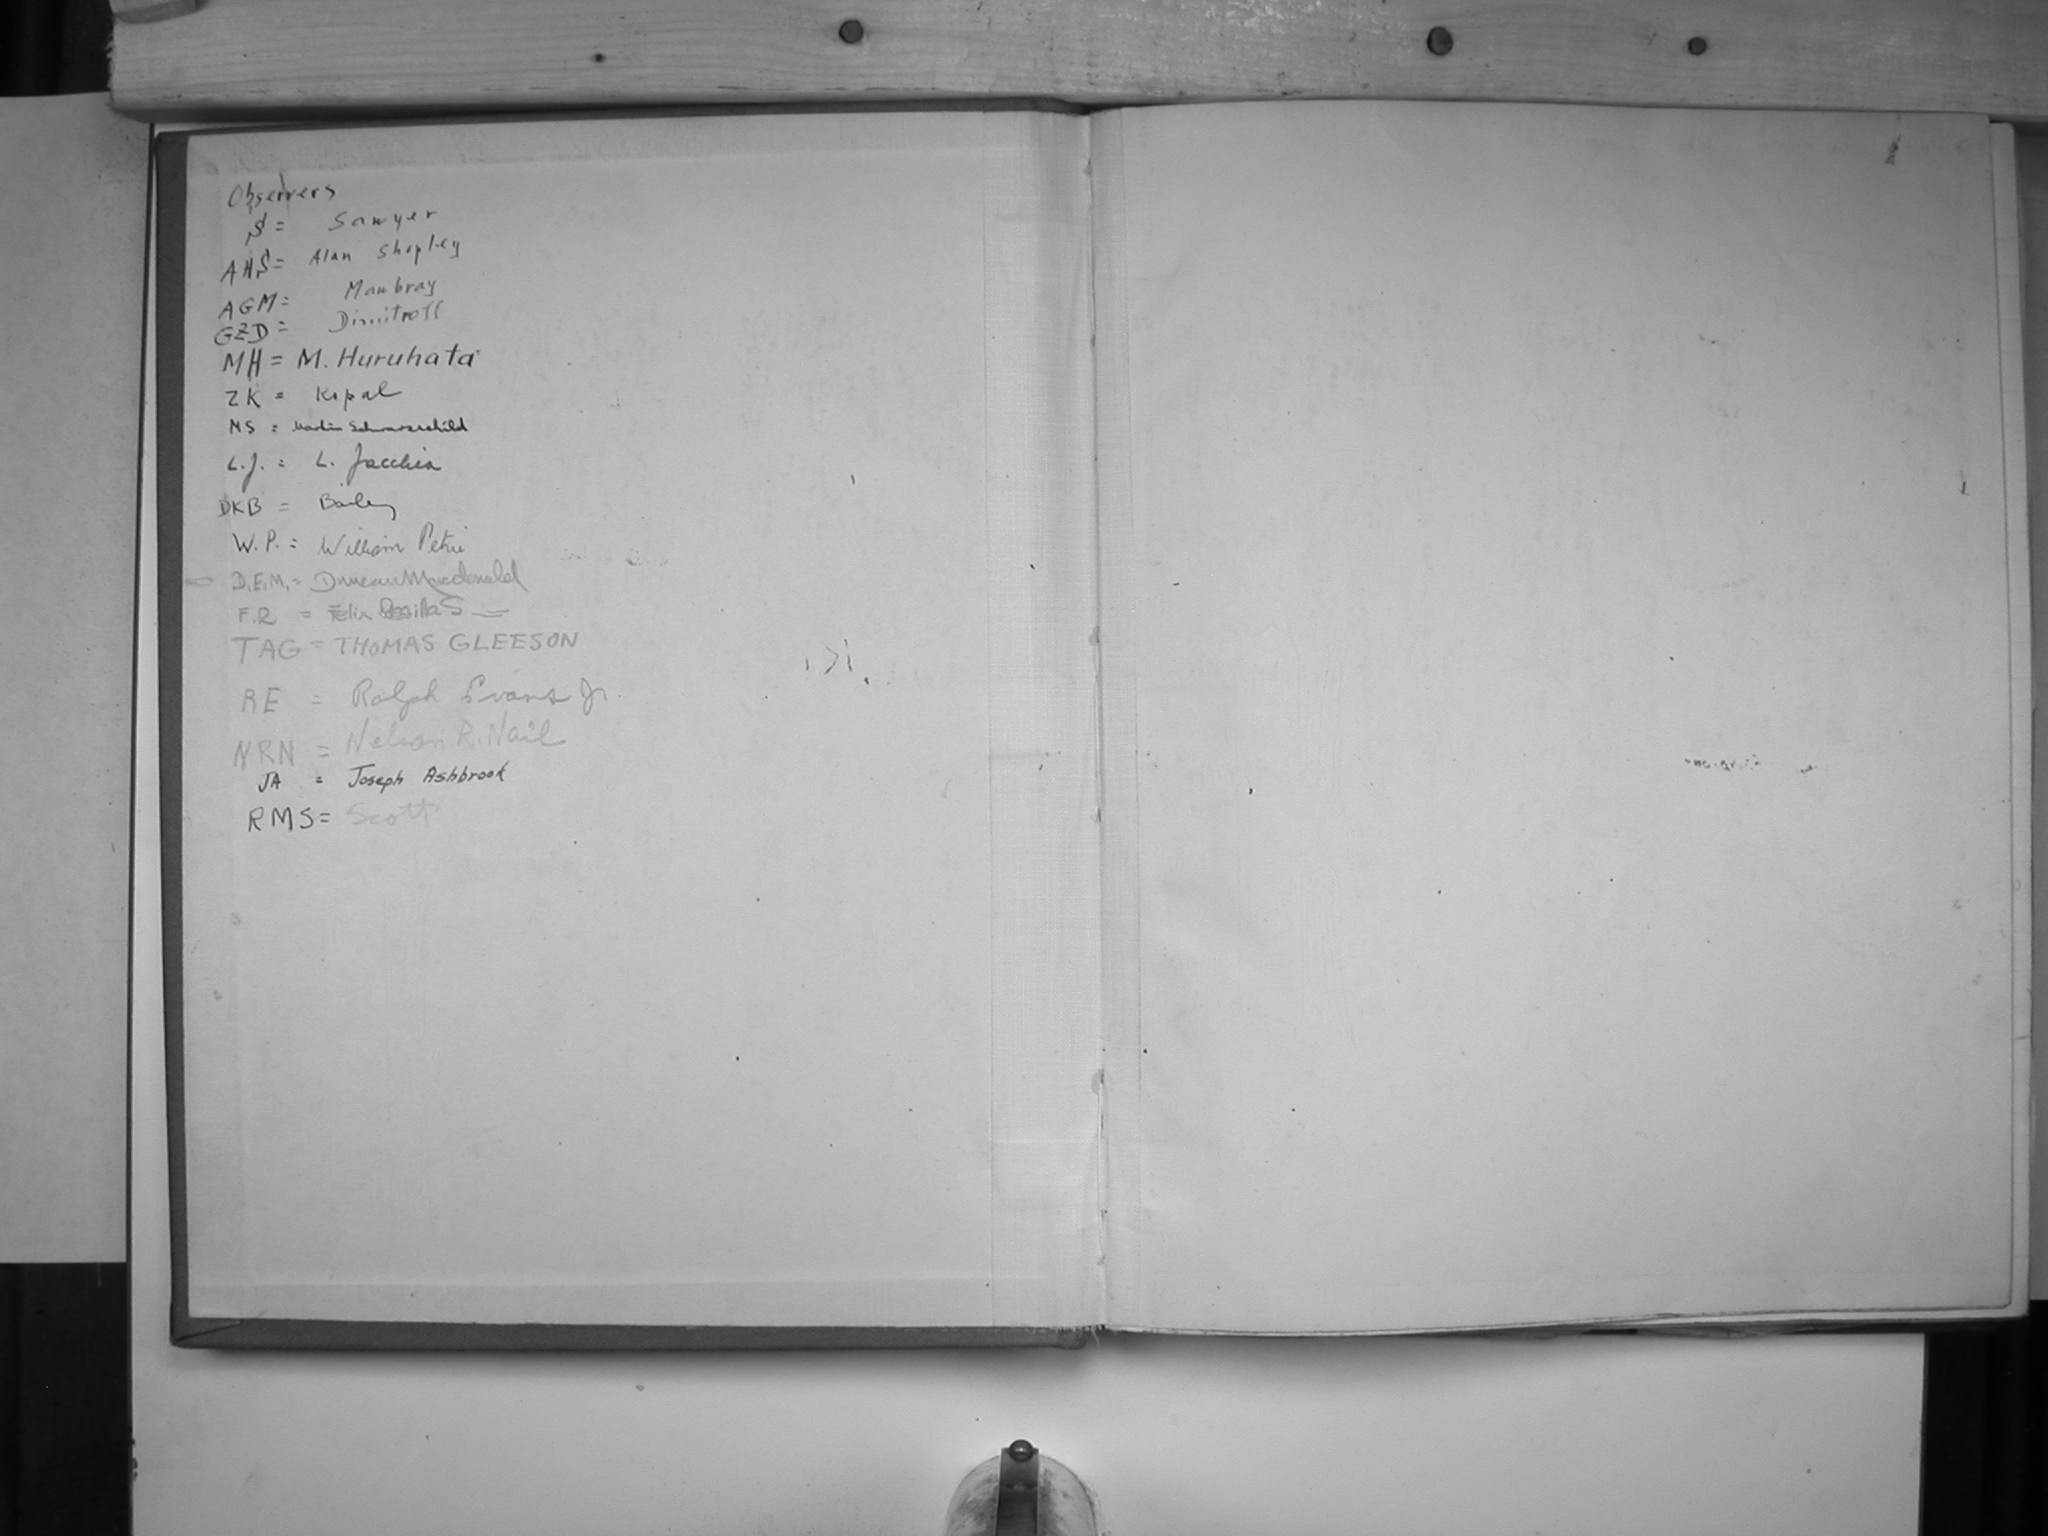 Observers
S = Sawyer
AHS = Alan Shapley
AGM = Mowbray
GZD = Dimitroff
MH = M. Huruhata
ZK = Kopal
MS = Martin Schwarzschild
L.J. = L. Jacchia
DKB = Bailey
W.P. = William Petrie
D.E.M. = Duncan Macdonald
F.R = Felix
TAG = THOMAS GLEESON
RE = Ralph Evans Jr.
NRN = Nelson R. Nail
JA = Joseph Ashbrook
RMS = Scott